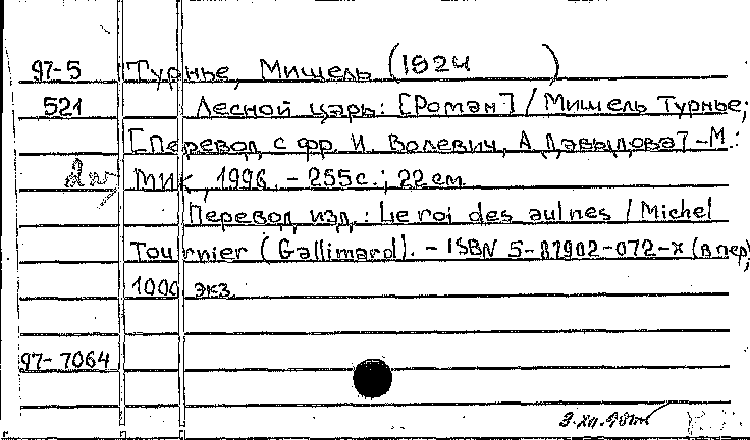 97-5 Турнье, Мишель (1924 )
521 Лесной царь: [Роман] / Мишель Турнье;
[Перевод с фр. И. Волевич, А. Давыдова] -М.:
2 МИК, 1996. - 255с.; 22 см
Перевод изд.: Le roi des aulnes / Michel
Tournier (Gallimard). - ISBN 5-87902-072-x (в пер)
1000 экз.
97-7064